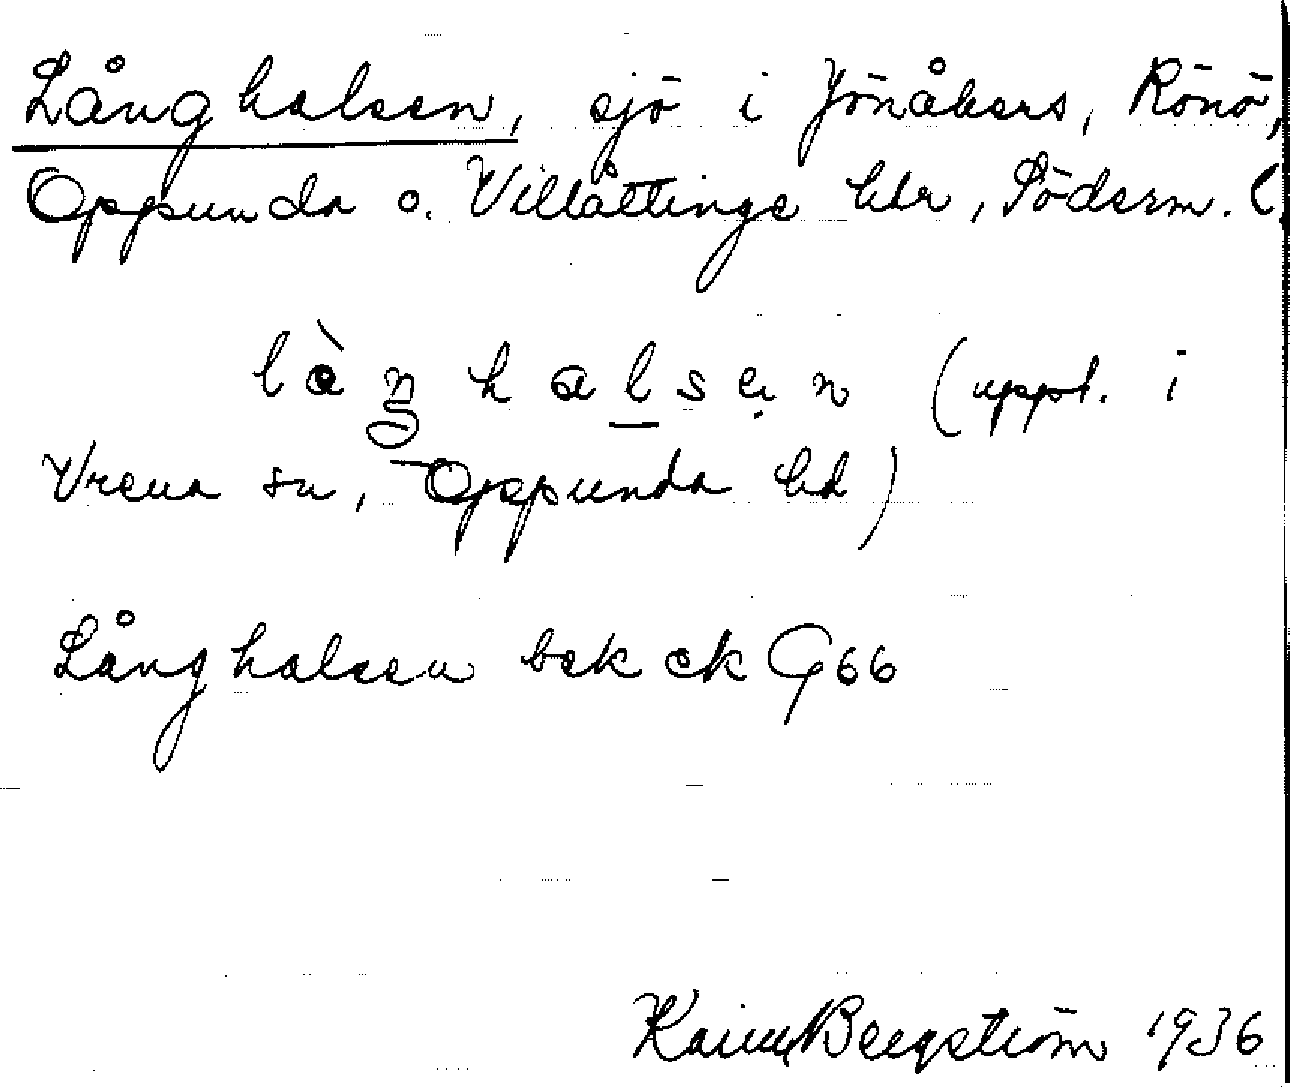 Långhalsen, sjö i Jönåkers, Rönö,
Oppunda o. Villåttinge hdr, Söderm. l.
làŋhalsen (uppt. i
Vrena sn, Oppunda hd)
Långhalsen bek ek G66
Bergström 1936